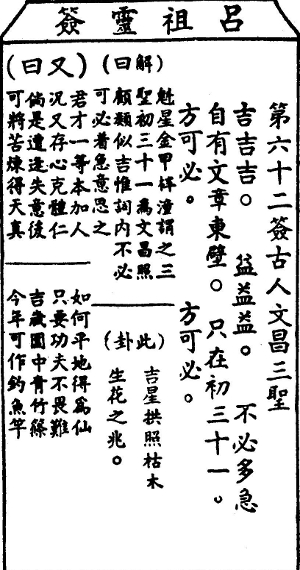 呂祖靈簽
第六十二簽古人文昌三聖
吉吉吉。益益益。不必多急
自有文章東壁。只在初三十一。
方可必。方可必。
(解曰)
魁星金甲梓潼謂之三
聖初三十一爲文昌照
顧類似吉惟詞内不必
可必着急意思之
(此卦)
吉星拱照枯木
生花之兆。
(又曰)
君才一等本加人
況又存心克體仁
倘是遭逢失意後
可將苦煉得天真
如何平地得爲仙
只要功夫不畏難
吉歲園中青竹篠
今年可作釣魚竿